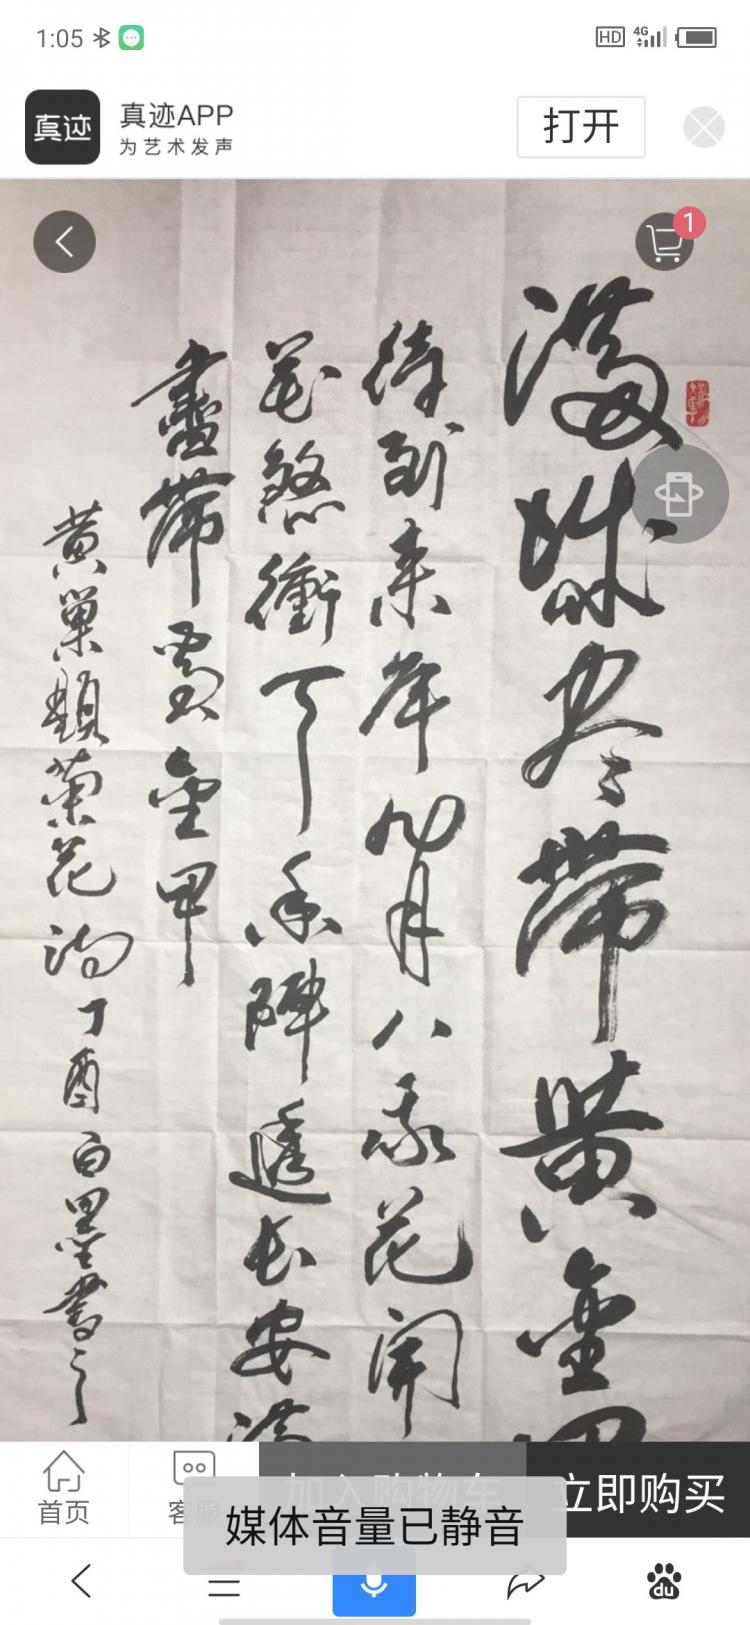 1:05
HD 4G
真迹
真迹APP
为艺术发声
打开
1
滿城尽帶黄金甲
待到来年九月八我花開
花煞衝天香陣透长安滿
盡帶黄金甲
黄巢題菊花詞丁酉白墨書之
首页
客服
加入购物车
立即购买
媒体音量已静音
du